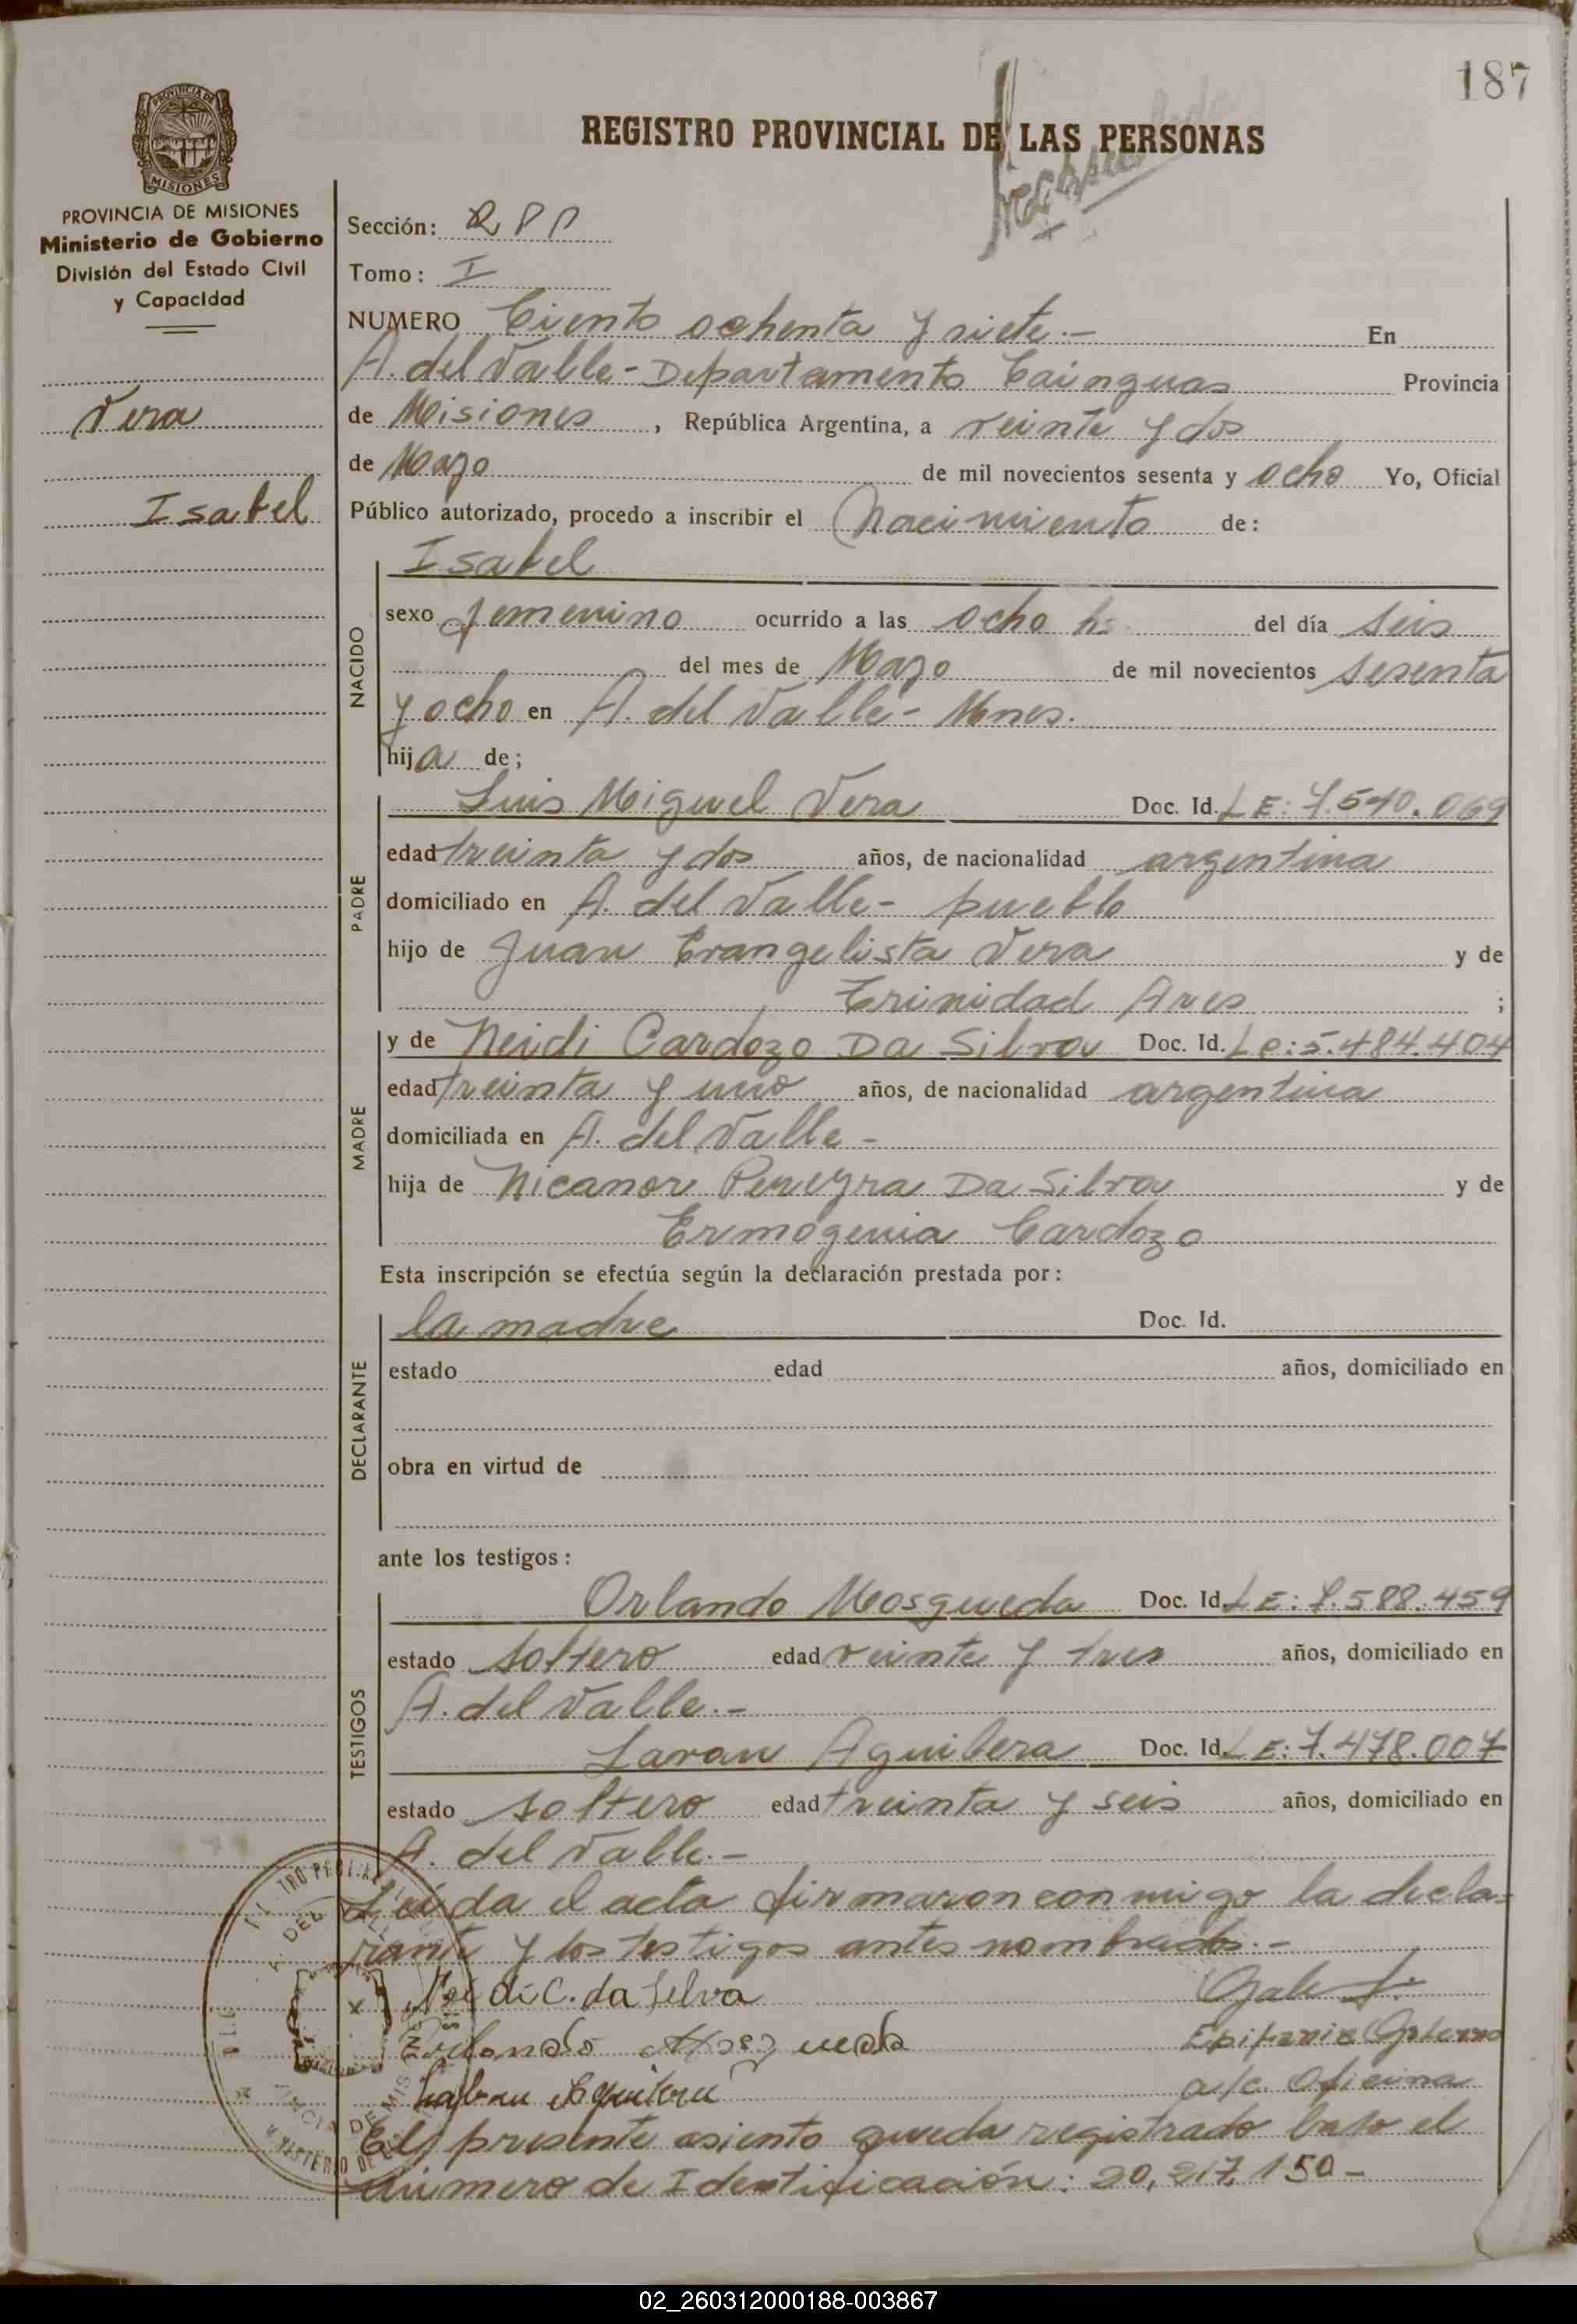 187
REGISTRO PROVINCIAL DE LAS PERSONAS
PROVINCIA DE MISIONES
Ministerio de Gobierno
División del Estado Civil
y Capacidad
Vera
Isabel
Sección: RPP
Tomo: I
NUMERO Ciento ochenta y siete.- En
A. del Valle - Departamento Cainguas Provincia
de Misiones, República Argentina, a veinte y dos
de Mayo de mil novecientos sesenta y ocho Yo, Oficial
Público autorizado, procedo a inscribir el Nacimiento de:
NACIDO
Isabel
sexo femenino ocurrido a las ocho hs del día seis
del mes de Mayo de mil novecientos sesenta
y ocho en A. del Valle - Mnes.
hija de;
PADRE
Luis Miguel Vera Doc. Id. LE: 7.540.069
edad treinta y dos años, de nacionalidad argentina
domiciliado en A. del Valle - pueblo
hijo de Juan Evangelista Vera y de
Trinidad Ares ;
MADRE
y de Neidi Cardozo Da Silva Doc. Id. Lc: 5.484.404
edad treinta y uno años, de nacionalidad argentina
domiciliada en A. del Valle -
hija de Nicanor Pereyra Da Silva y de
Ermogenia Cardozo
Esta inscripción se efectúa según la declaración prestada por:
DECLARANTE
la madre Doc. Id.
estado edad años, domiciliado en
obra en virtud de
ante los testigos:
TESTIGOS
Orlando Mosqueda Doc. Id. LE: 7.588.459
estado soltero edad veinte y tres años, domiciliado en
A. del Valle.-
Laran Aguilera Doc. Id. LE: 7.478.007
estado soltero edad treinta y seis años, domiciliado en
A. del Valle.-
Leida el acta firmaron conmigo la decla-
rante y los testigos antes nombrados.-
Neidi C. da Silva
Orlando Mosqueda
Aguilera
a/c. Oficina
El presente asiento queda registrado bajo el
número de Identificación: 20,217,150-
02_260312000188-003867